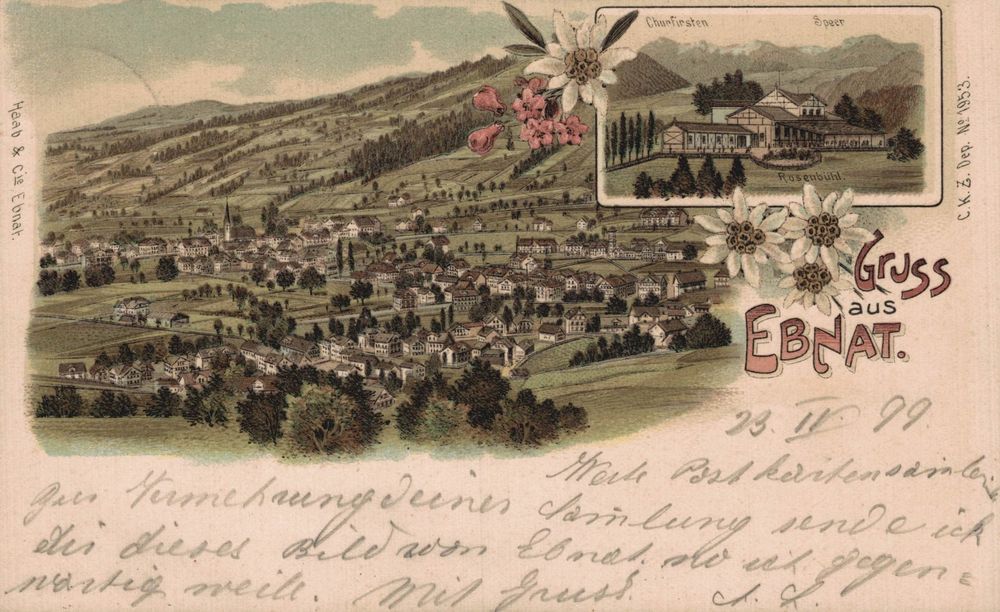 Churfirsten Speer
Rosenbühl.
Haab & Cie Ebnat.
C.K.Z. Dep. No 1953.
Gruss
aus
Ebnat.
23. IV. 99.
Werte Postkartensamler
Zur Vermehrung deiner Samlung sende ich
dir dieses Bild von Ebnat. wo ich gegen=
wärtig weile. Mit Gruss.